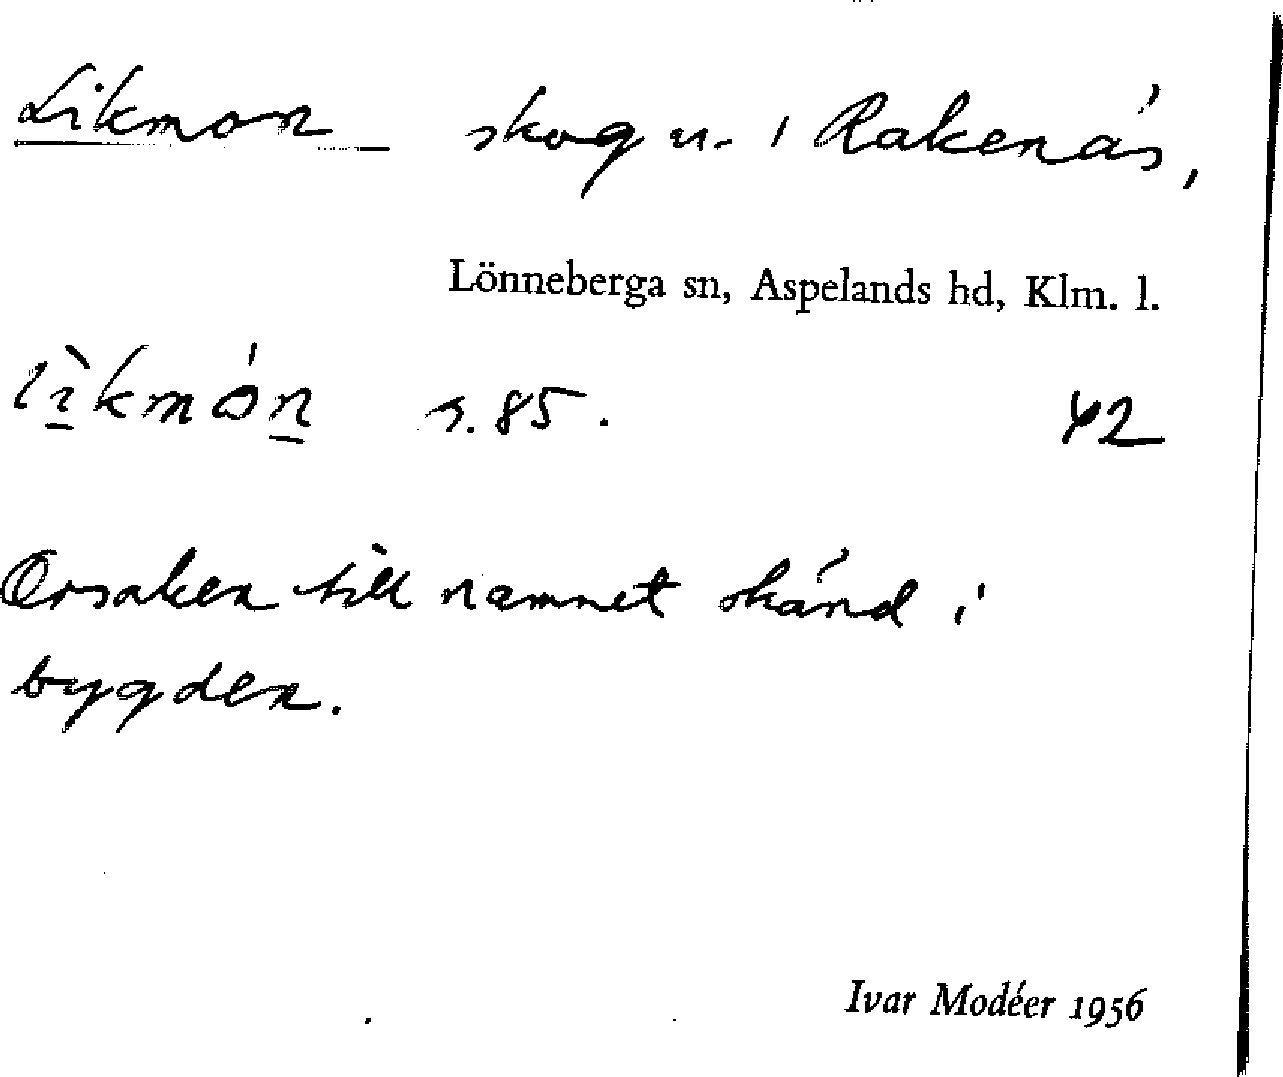 Likmon skog n. i Rakenäs,
Lönneberga sn, Aspelands hd, Klm. l.
lìkmón s. 85. 42
Orsaken till namnet okänd i
bygden.
Ivar Modéer 1956